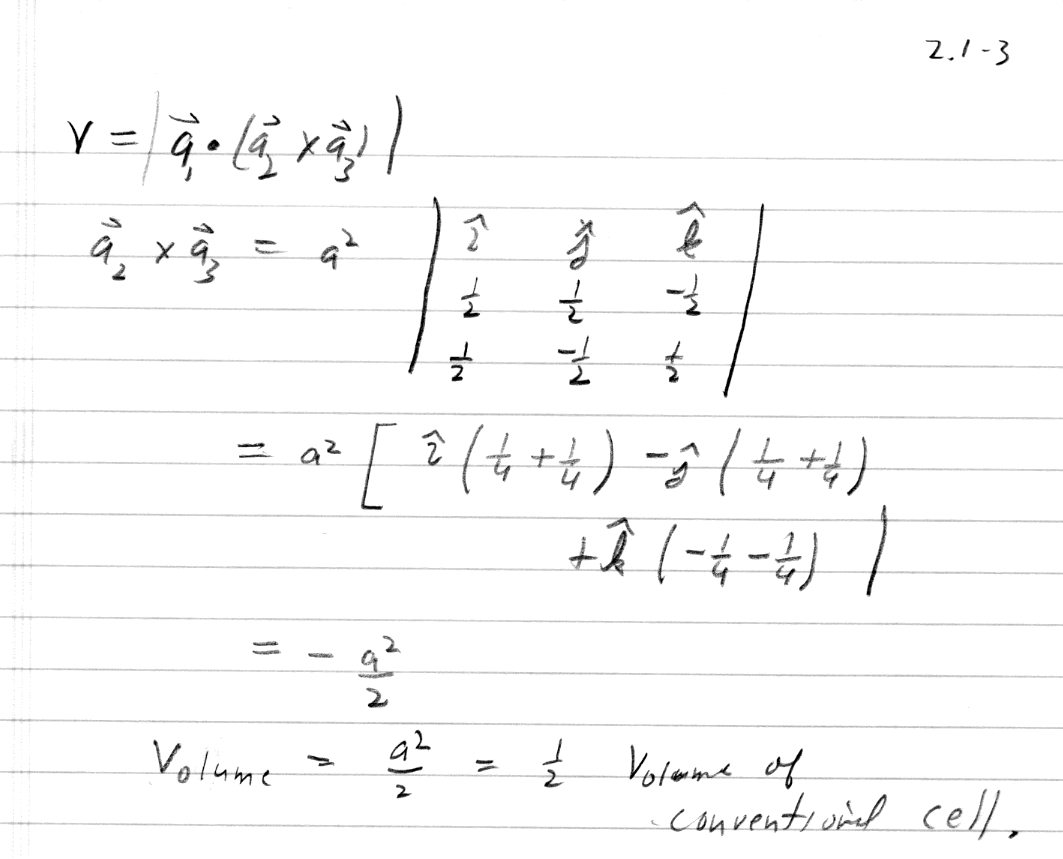 2.1-3
V = |a⃗₁ · (a⃗₂ × a⃗₃)|
a⃗₂ × a⃗₃ = a² | î ĵ k̂ |
1/2 1/2 -1/2
1/2 -1/2 1/2
= a² [ î (1/4 + 1/4) - ĵ (1/4 + 1/4)
+ k̂ (-1/4 - 1/4) |
= - a²/2
Volume = a²/2 = 1/2 Volume of
conventional cell.